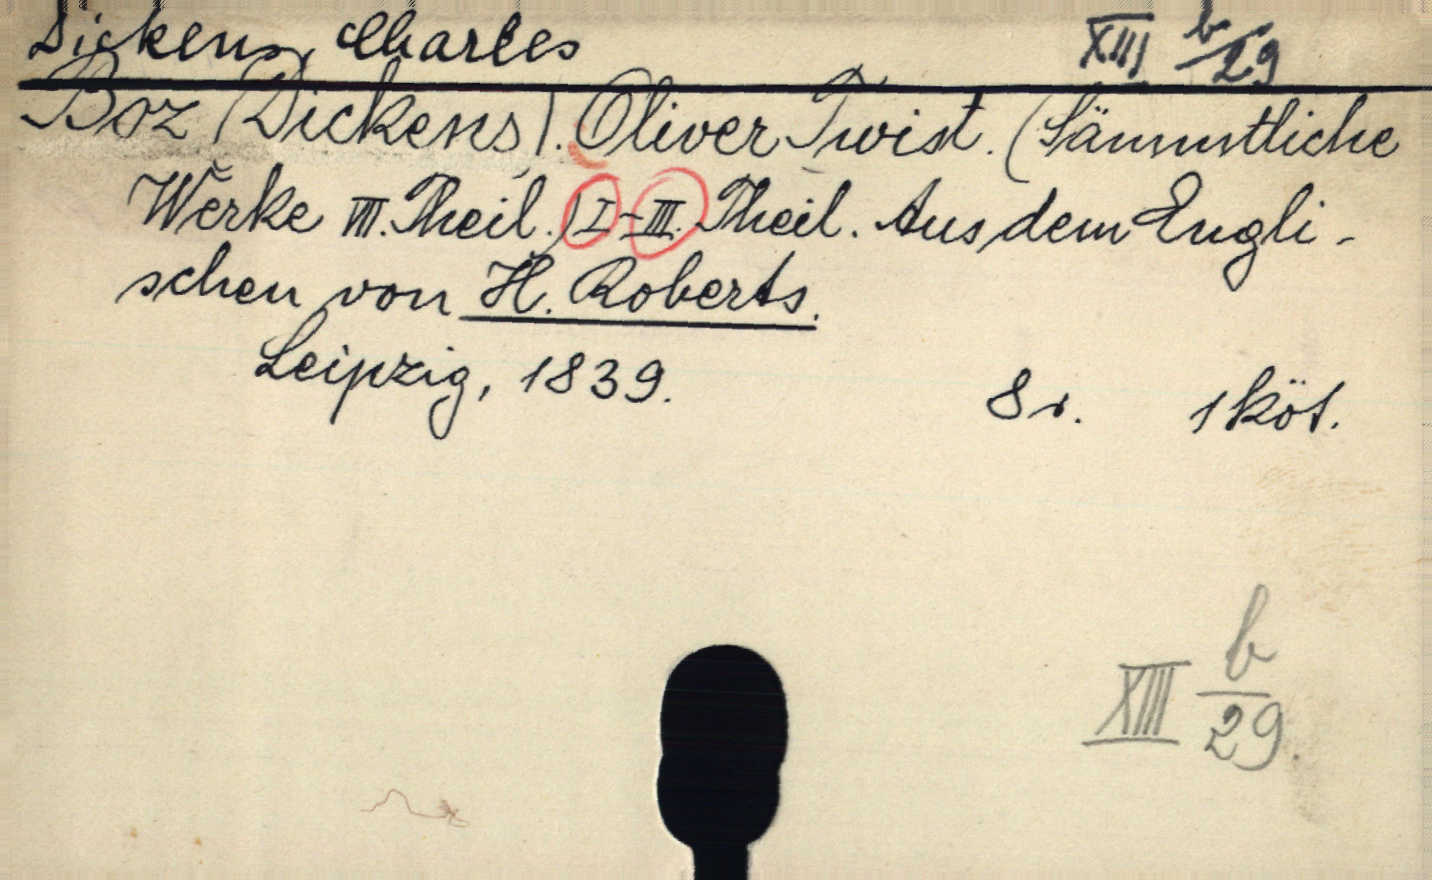 Dickens, Charles XIII b/29
Boz (Dickens). Oliver Twist. (Sämmtliche
Werke VII. Theil.) I-III. Theil. Aus dem Engli-
schen von H. Roberts.
Leipzig, 1839. 8r. 1 köt.
XIII b/29